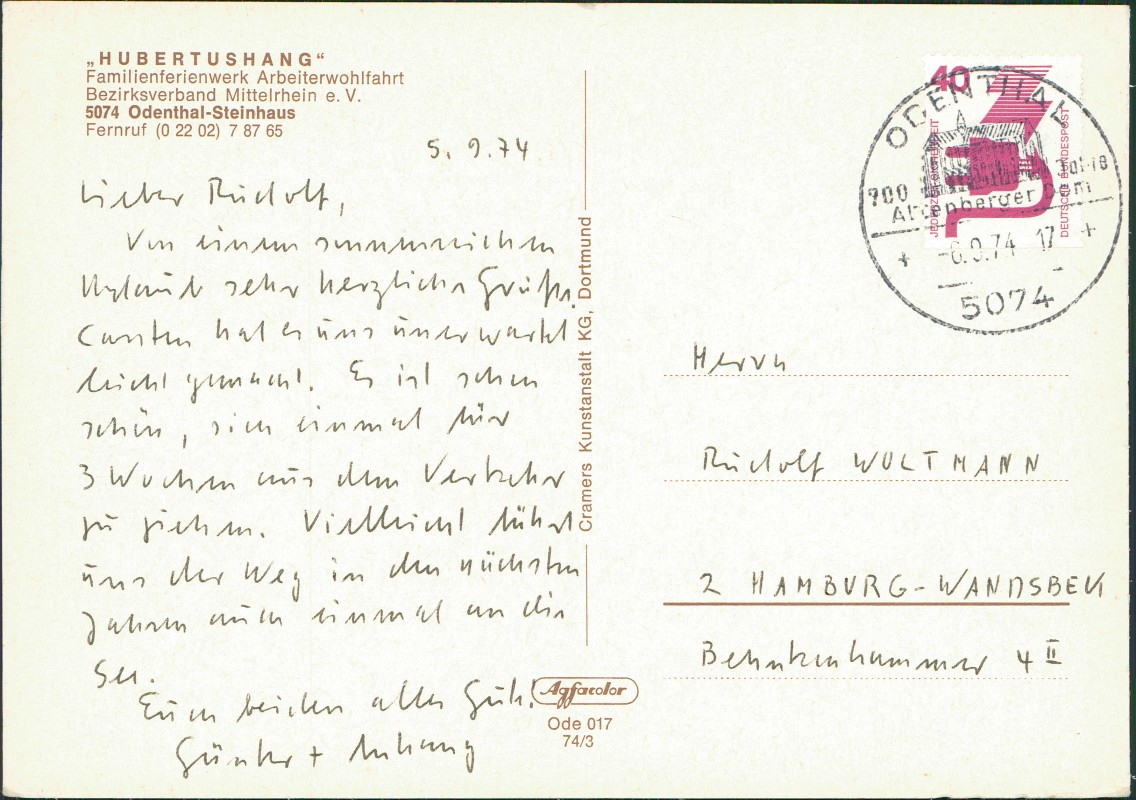 „HUBERTUSHANG“
Familienferienwerk Arbeiterwohlfahrt
Bezirksverband Mittelrhein e. V.
5074 Odenthal-Steinhaus
Fernruf (0 22 02) 7 87 65
5. 9. 74
Lieber Rudolf,
Von einem sonnenreichen
Urlaub sehr herzliche Grüße.
Carsten hat es uns unerwartet
leicht gemacht. Es ist schon
schön, sich einmal für
3 Wochen aus dem Verkehr
zu ziehen. Vielleicht führt
uns der Weg in den nächsten
Jahren auch einmal an die
See.
Euch beiden alles Gute!
Günter + Anhang
Cramers Kunstanstalt KG, Dortmund
Agfacolor
Ode 017
74/3
40
JEDERZEIT SICHERHEIT
DEUTSCHE BUNDESPOST
ODENTHAL
700 Jahre
Altenberger Dom
-6.9.74-17
5074
Herrn
Rudolf WULTMANN
2 HAMBURG-WANDSBEK
4 II